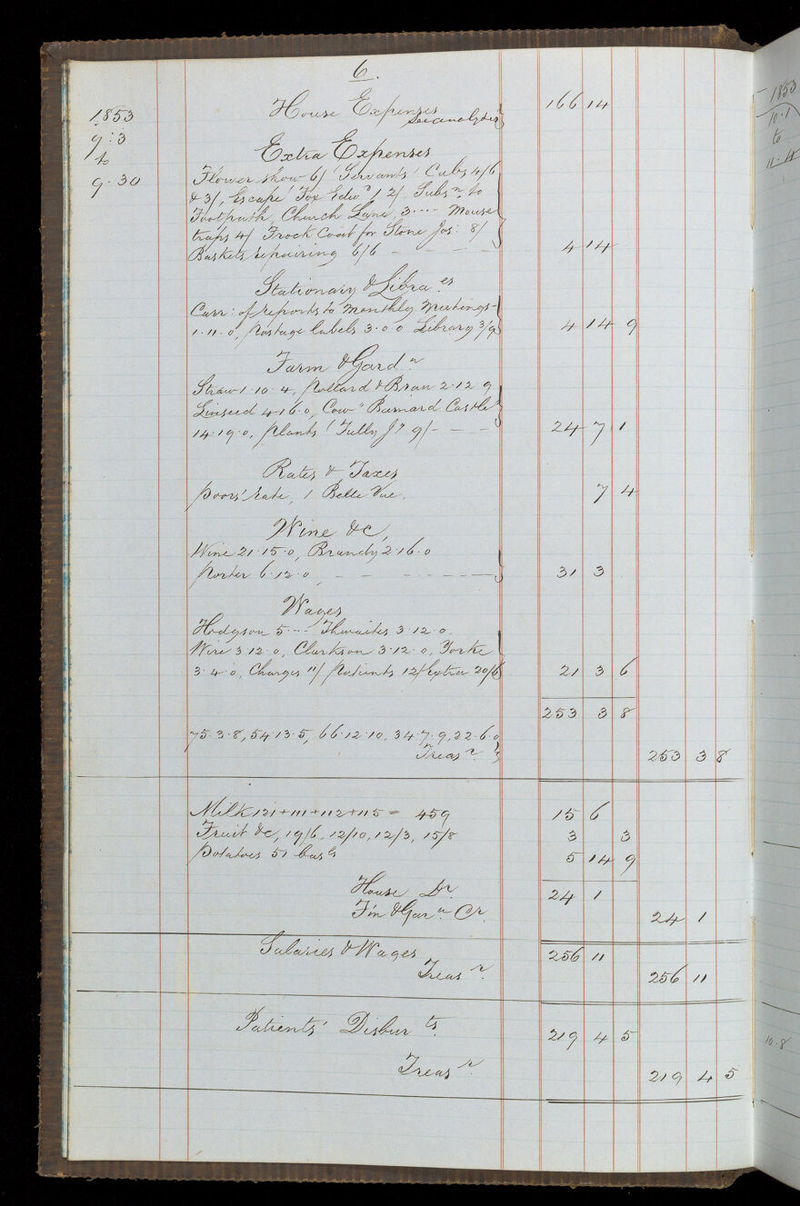 6.
1853
9:3
to
9.30
House Expenses see analysis 166 14
Extra Expenses
Flower show 6/ Servants' Cabs 4/6
& 3/, Escape' Fox Edwd / 2/. Subsn. to
Footpath, Church Lane, 3.... Mouse
traps 4/ Frock Coat for Stone Jos: 8/
Baskets repairing 6/6 - - - 4 14
Stationary & Libraries
Carr: of reports to Monthly Meetings
1.11.0, Postage labels 3.0.0 Library 3/9 4 14 9
Farm & Gardn
Straw 1.10.4, Pollard & Bran 2.12.9
Linseed 4.16.0, Cow " Barnard Castle
14.19.0, Plants 9/- - - 24 7 1
Rates & Taxes
Poors' rate, 1 Belle Vue. 7 4
Wine &c,
Wine 21.15.0, Brandy 2.16.0
Porter 6.12.0 - - - 31 3
Wages
Hodgson 5.... Thwaites 3.12.0,
Wire 3.12.0, Clarkson 3.12.0, Yorke
3.4.0, Charges 11/ Patients 12/ Extra 20/6 21 3 6
253 3 8
75.3.8, 54.13.5, 66.12.10, 34.7.9, 22.6.0
Treasr. 253 3 8
Milk 121+111+112+115 = 459 15 6
Fruit &c, 19/6, 12/10, 12/3, 15/8 3 3
Potatoes 51 bushs 5 14 9
House Dr. 24 1
Fm & Garn Cr. 24 1
Salaries & Wages 256 11
Treasr. 256 11
Patients' Disburts. 219 4 5
Treasr 219 4 5
1853
10.1
to
10.8